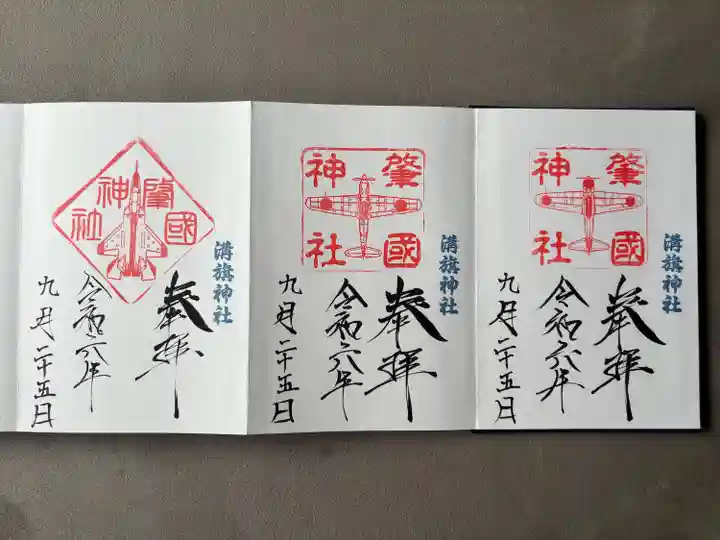 奉拝
溝旗神社
肇國
神社
令和六年
九月二十五日
奉拝
溝旗神社
肇國
神社
令和六年
九月二十五日
溝旗神社
奉拝
肇國
神社
令和六年
九月二十五日